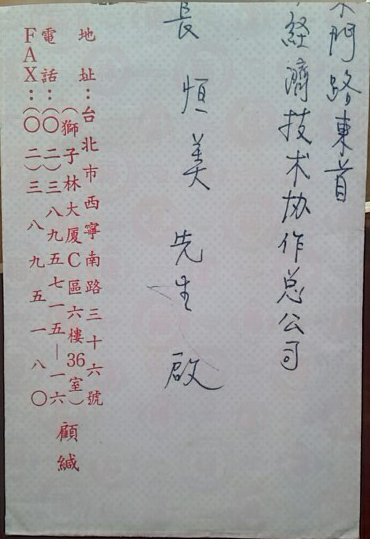 門路東首
經濟技术协作总公司
長恒美先生啟
地址：台北市西寧南路三十六號
（獅子林大厦C區六樓36室）
電話：（〇二）三八九五七一五—一六
FAX：（〇二）三八九五一八〇
顧緘